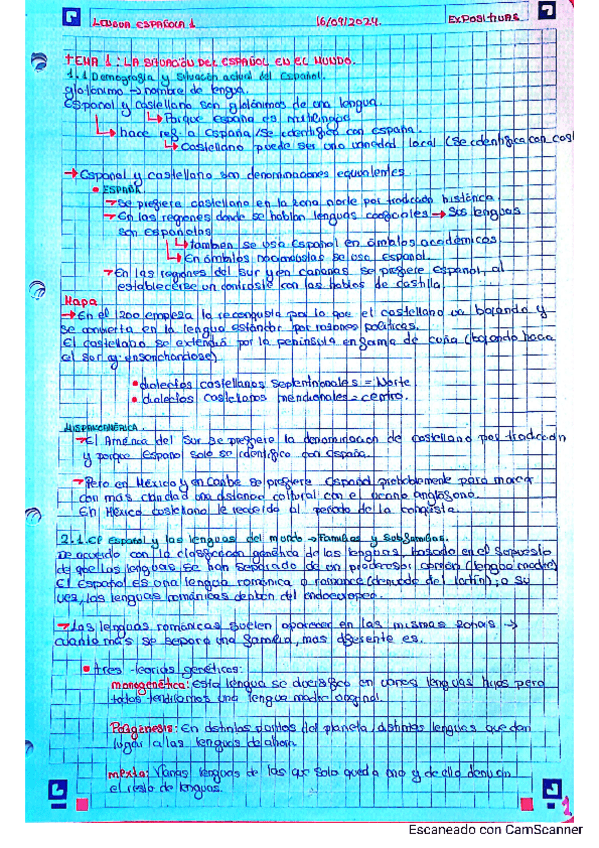 LENGUA ESPAÑOLA 1 16/09/2024. EXPOSITIVAS
TEMA 1: LA SITUACIÓN DEL ESPAÑOL EN EL MUNDO.
1.1 Demografía y situación actual del Español.
glotónimo → nombre de lengua.
Español y castellano son glotónimos de una lengua.
↳ Porque españa es multilingüe
↳ hace ref. a España/se identifica con españa.
↳ Castellano puede ser una variedad local (se identifica con cast
→ Español y castellano son denominaciones equivalentes
• ESPAÑA
→ Se prefiere castellano en la zona norte por tradición histórica
→ En las regiones donde se hablan lenguas cooficiales → sus lenguas
son españolas
↳ también se usa español en ámbitos académicos
↳ En ámbitos nacionalistas se usa español.
→ En las regiones del sur y en canarias se prefiere español, al
establecerse un contraste con las hablas de castilla.
Mapa
→ En el 1200 empieza la reconquista por lo que el castellano va bajando y
se convierte en la lengua estándar por razones políticas.
El castellano se extendió por la península en forma de cuña (bajando hacia
el sur y ensanchandose)
• dialectos castellanos septentrionales = Norte
• dialectos castellanos meridionales = centro.
HISPANOAMÉRICA.
→ El América del Sur se prefiere la denominación de castellano por tradición
y porque Español solo se identifica con españa.
→ Pero en México y en Caribe se prefiere Español probablemente para marcar
con más claridad una distancia cultural con el ocano anglosono.
En México castellano le recuerda al periodo de la conquista.
2.1. El español y las lenguas del mundo → Familias y Subfamilias.
De acuerdo con la clasificación genética de las lenguas, basado en el supuesto
de que las lenguas se han separado de un predecesor común (lengua madre)
El Español es una lengua románica o romance (derivado del latín); a su
vez, las lenguas románicas derivan del indoeuropeo.
→ Las lenguas románicas suelen aparecer en las mismas zonas →
cuanto más se separa una familia, mas diferente es.
• tres teorías genéticas:
monogenética: Esta lengua se diversificó en varias lenguas hijas pero
todas tendríamos una lengua madre original.
Poligénesis: En distintos puntos del planeta, distintas lenguas que dan
lugar a las lenguas de ahora.
mixta: Varias lenguas de las que solo queda una y de ella derivan
el resto de lenguas.
1
Escaneado con CamScanner